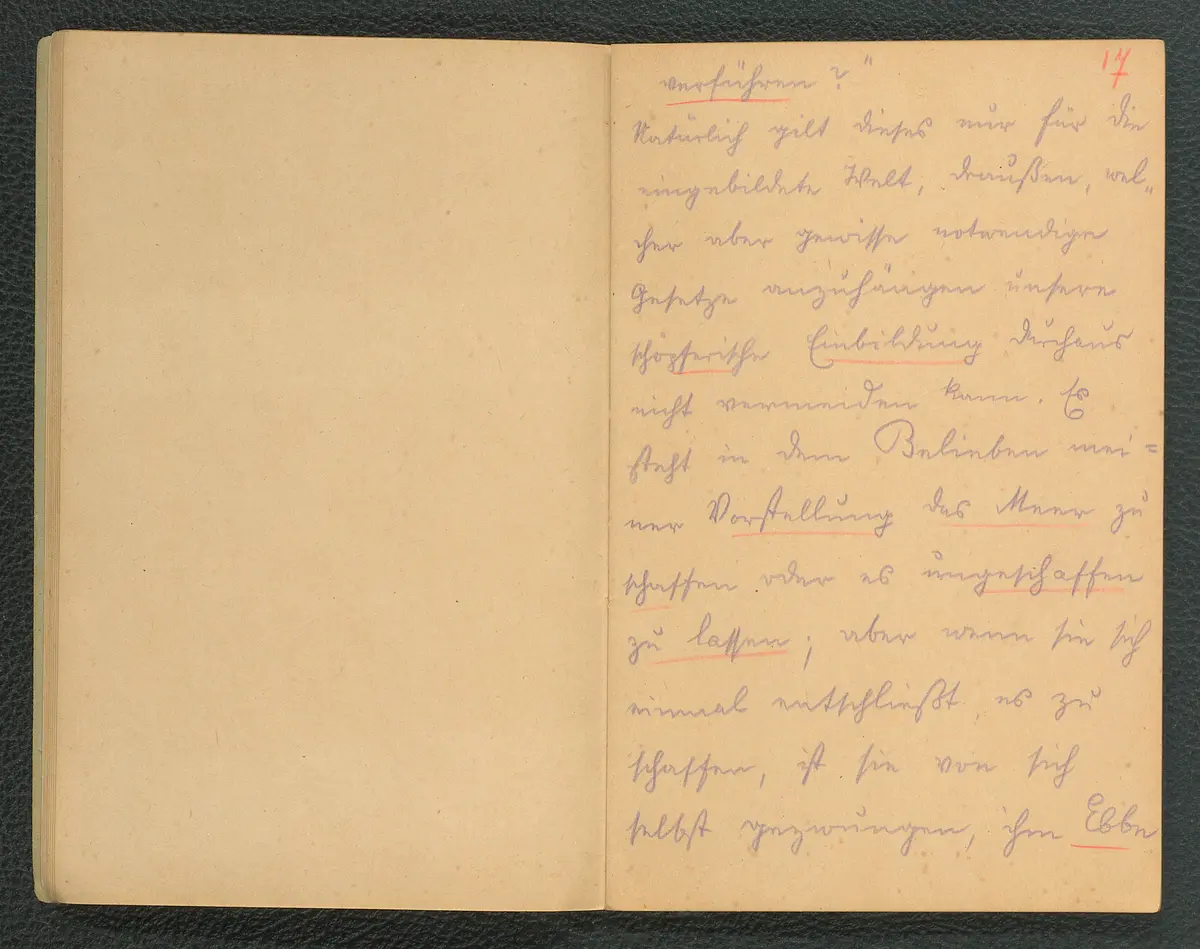 17
verführen?"
Natürlich gilt dieses nur für die
eingebildete Welt, draußen, wel„
cher aber gewisse notwendige
Gesetze anzuhängen unsere
schöpferische Einbildung durchaus
nicht vermeiden kann. Es
steht in dem Belieben mei=
ner Vorstellung das Meer zu
schaffen oder es ungeschaffen
zu lassen; aber wenn sie sich
einmal entschließt, es zu
schaffen, ist sie von sich
selbst gezwungen, ihm Ebbe